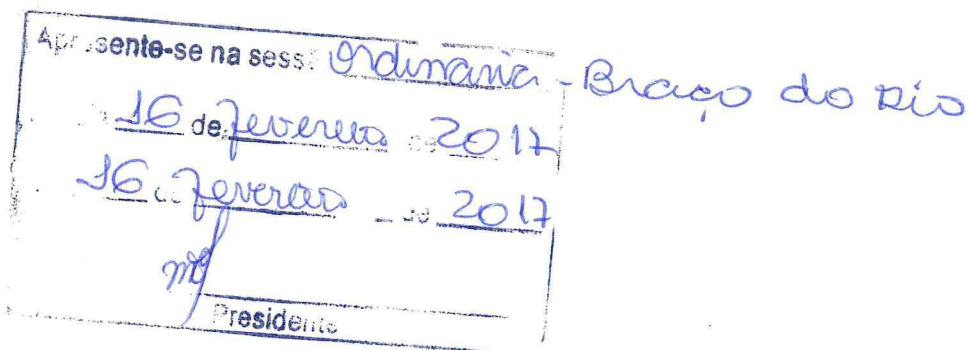 Apresente-se na sessão Ordinaria - Braço do Rio
16 de Fevereiro de 2017
16 de Fevereiro de 2017
Presidente